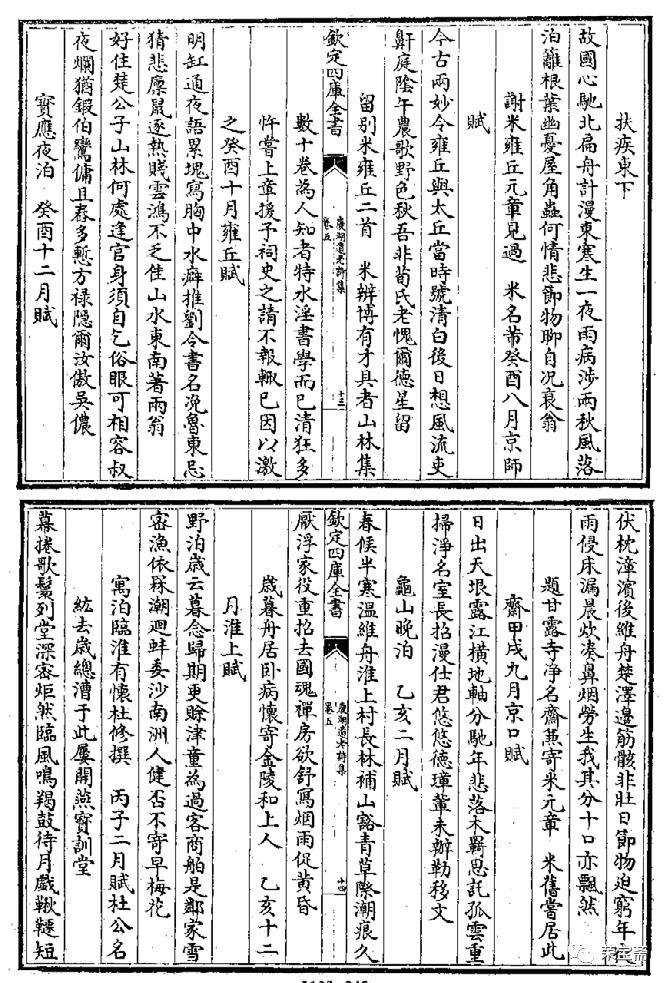 扶疾東下
故國心馳北扁舟計漫東寒生一夜雨病涉兩秋風落
泊籬根葉幽憂屋角蟲何情悲節物聊自况衰翁
謝米雍丘元章見過　米名芾癸酉八月京師
賦
今古兩妙令雍丘與太丘當時號清白後日想風流吏
鼾庭陰午農歌野色秋吾非荀氏老愧爾德星留
留別米雍丘二首　米辨博有才具著山林集
欽定四庫全書
慶湖遺老詩集
卷五
十三
數十卷為人知者特水淫書學而已清狂多
忤嘗上章援予祠史之請不報輙已因以激
之癸酉十月雍丘賦
明缸通夜語累塊寫胸中水癖推劉令書名凂魯東忌
猜悲廪鼠逐熱賤雲鴻不乏佳山水東南著兩翁
好住楚公子山林何處逢官身須自乞俗眼可相容叔
夜爛猶鍛伯鸞傭且舂多慙方禄隠爾汝傲吳儂
寳應夜泊　癸酉十二月賦
伏枕漳濱後維舟楚澤邉筋骸非壯日節物迫窮年
雨侵床漏晨炊凑鼻烟勞生我其分十口亦飄然
題甘露寺浄名齋兼寄米元章　米舊嘗居此
齋甲戌九月京口賦
日出天垠露江横地軸分馳年悲落木羇思託孤雲重
掃淨名室長招漫仕君悠悠德璋輩未辦勒移文
龜山晚泊　乙亥二月賦
春候半寒温維舟淮上村長林補山豁青草際潮痕久
欽定四庫全書
慶湖遺老詩集
卷五
十四
厭浮家役重招去國魂禪房欲舒寫烟雨促黄昏
歲暮舟居卧病懷寄金陵和上人　乙亥十二
月淮上賦
野泊歳云暮念歸期更賒津童為過客商舶是鄰家雪
密漁依槑潮廻蚌委沙南洲人健否不寄早梅花
寓泊臨淮有懷杜修撰　丙子二月賦杜公名
紘去歲總漕于此屢開燕寳訓堂
幕捲歌鬟列堂深宻炬然臨風鳴羯鼓待月戲鞦韆短